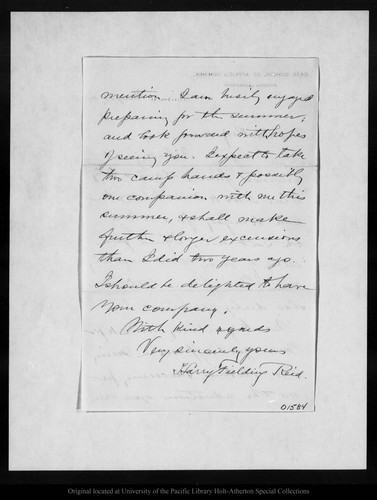 mention. I am busily engaged
preparing for the summer,
and look forward with hopes
of seeing you. I expect to take
two camp hands & possibly
one companion with me this
summer, & shall make
further & longer excursions
than I did two years ago.
I should be delighted to have
your company.
With kind regards
Very sincerely yours
Harry Fielding Reid.
01584
Original located at University of the Pacific Library Holt-Atherton Special Collections